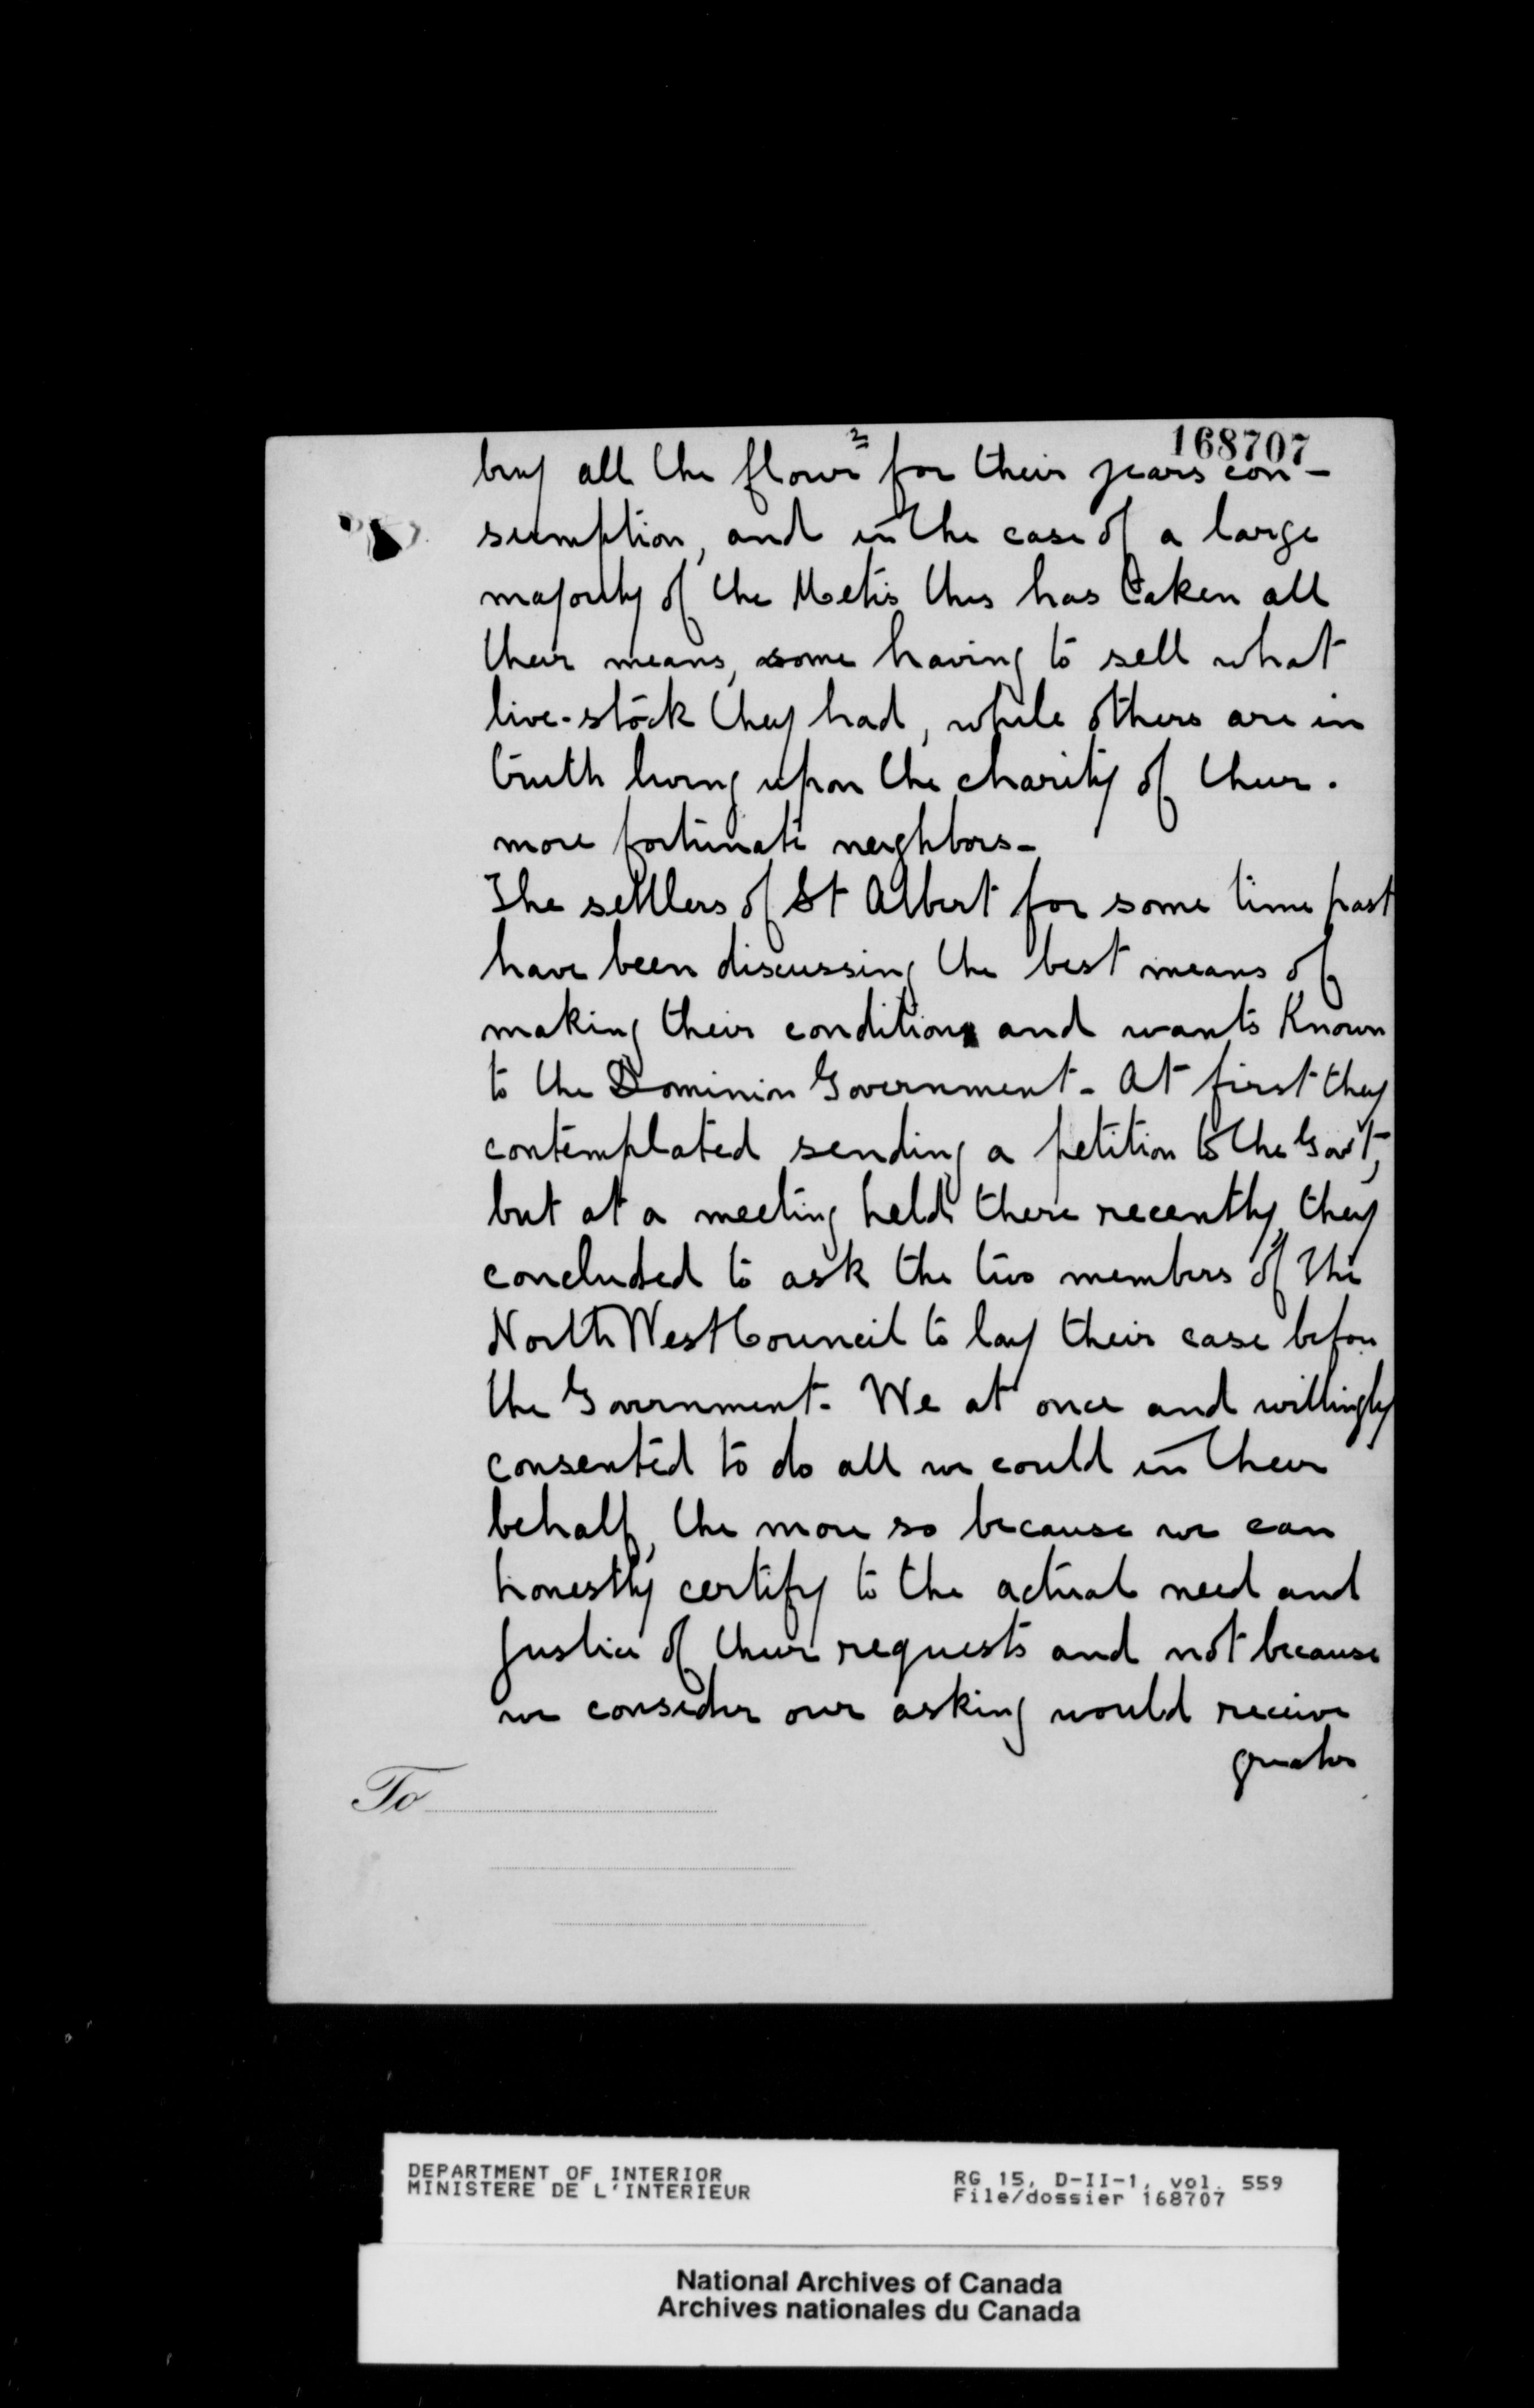 2
168707
buy all the flour for their years con-
sumption, and in the case of a large
majority of the Metis this has taken all
their means, some having to sell what
live-stock they had, while others are in
truth living upon the charity of their.
more fortunate neighbors-
The settlers of St Albert for some time past
have been discussing the best means of
making their condition and wants known
to the Dominion Government- At first they
contemplated sending a petition to the Gov't,
but at a meeting held there recently, they
concluded to ask the two members of the
North West Council to lay their case before
the Government- We at once and willingly
consented to do all we could in their
behalf, the more so because we can
honestly certify to the actual need and
justice of their requests and not because
we consider our asking would receive
greater
To
DEPARTMENT OF INTERIOR
MINISTERE DE L'INTERIEUR
RG 15, D-II-1, vol. 559
File/dossier 168707
National Archives of Canada
Archives nationales du Canada